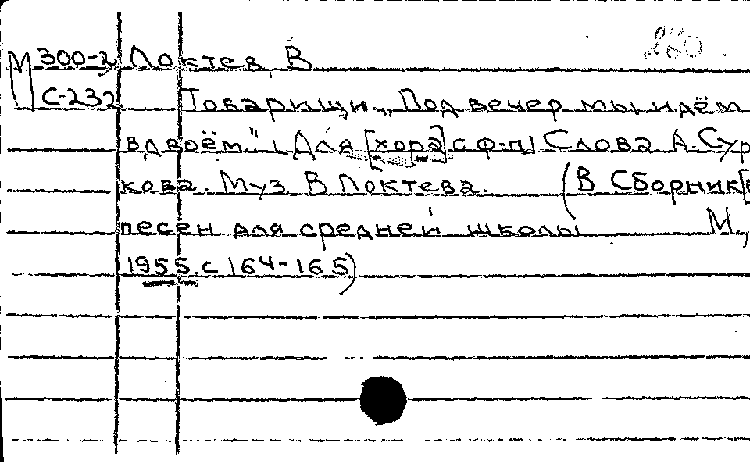 М 300-2 Локтев, В
С-232 Товарищи „Под вечер мы идём
вдвоём" (Для [хора] с ф-п) Слова А. Сур
кова. Муз. В Локтева. (В Сборник
песен для средней школы М.,
1955. с 164-165)